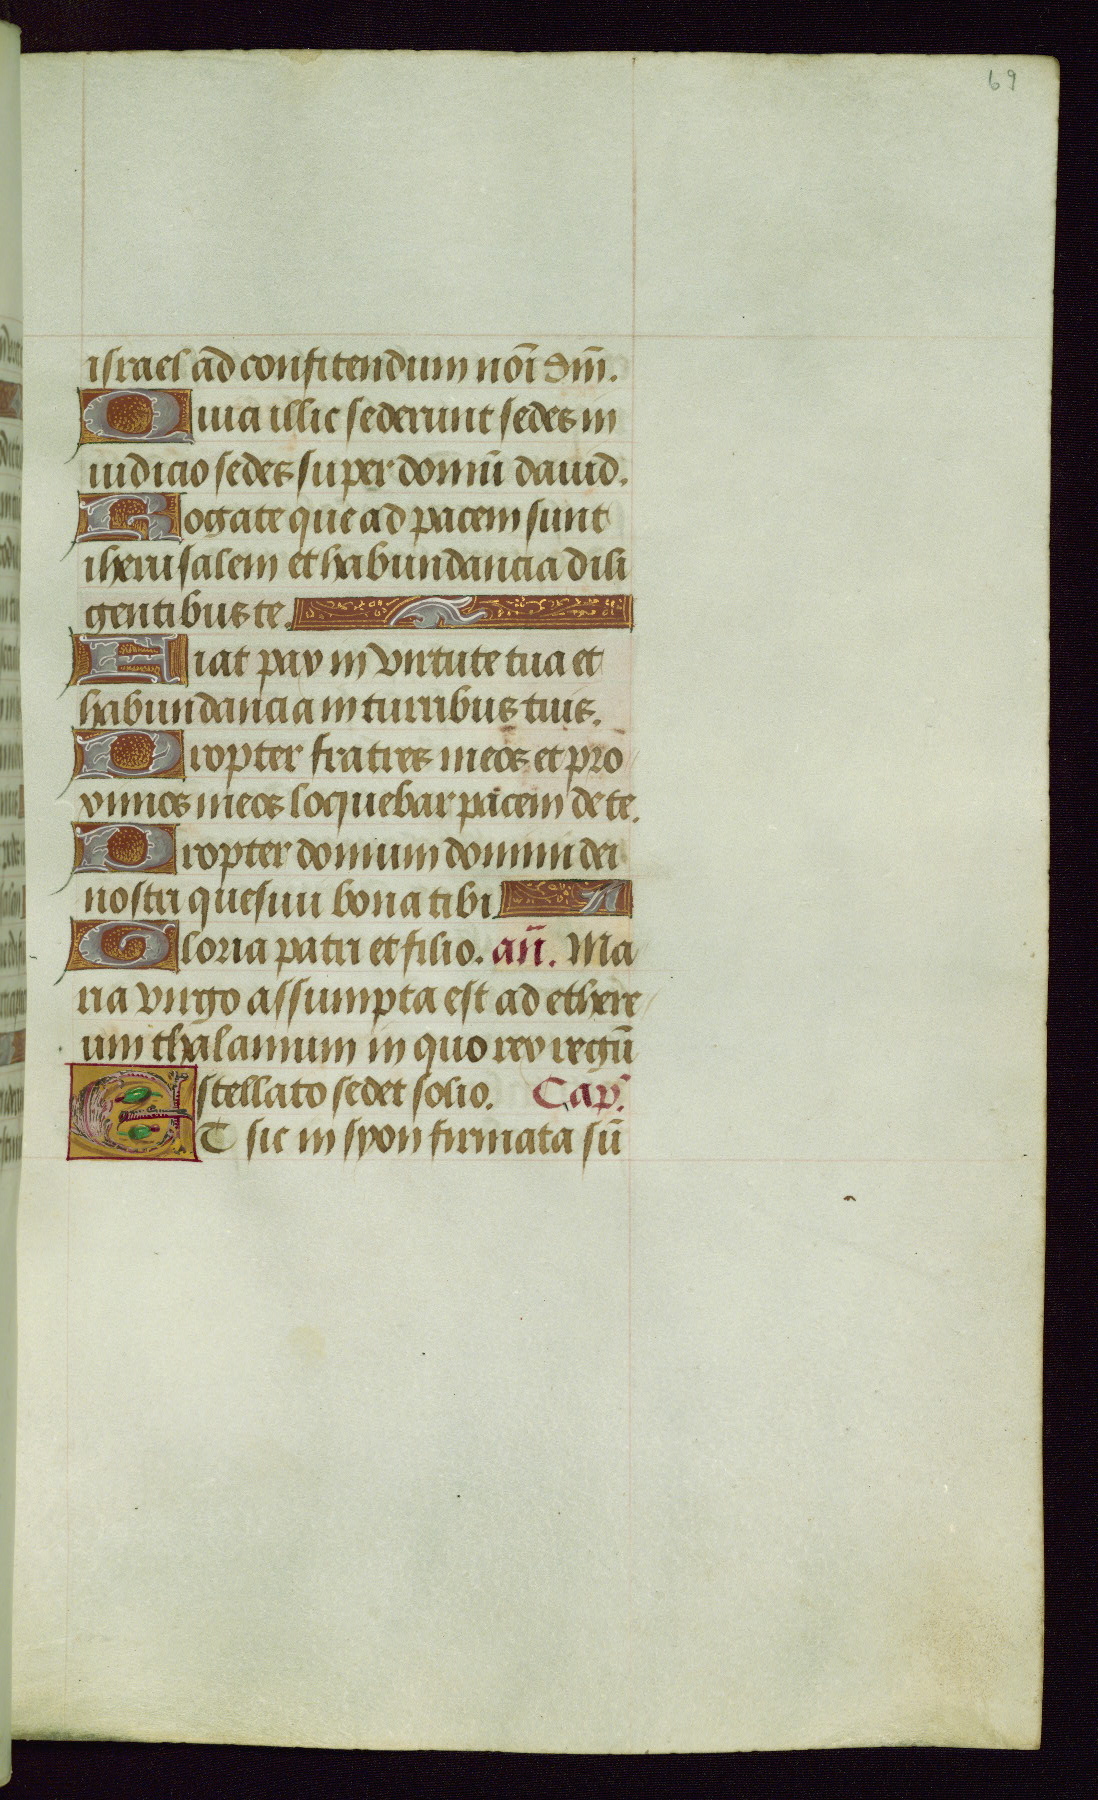 69
israel ad confitendum noı̄ dm̄.
Quia illic sederunt sedes in
iudicio sedes super domū dauid.
Rogate que ad pacem sunt
iherusalem et habundancia dili
gentibus te.
Fiat pax in virtute tua et
habundancia in turribus tuis.
Propter fratres meos et pro
ximos meos loquebar pacem de te.
Propter domum domini dei
nostri quesiui bona tibi
Gloria patri et filio. an̄. Ma
ria virgo assumpta est ad ethere
um thalamum in quo rex regū
stellato sedet solio. Cap.
ET sic in syon firmata sū